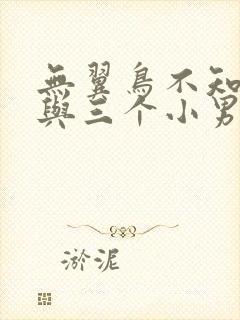 無翼鳥不知
與三个小男
淤泥